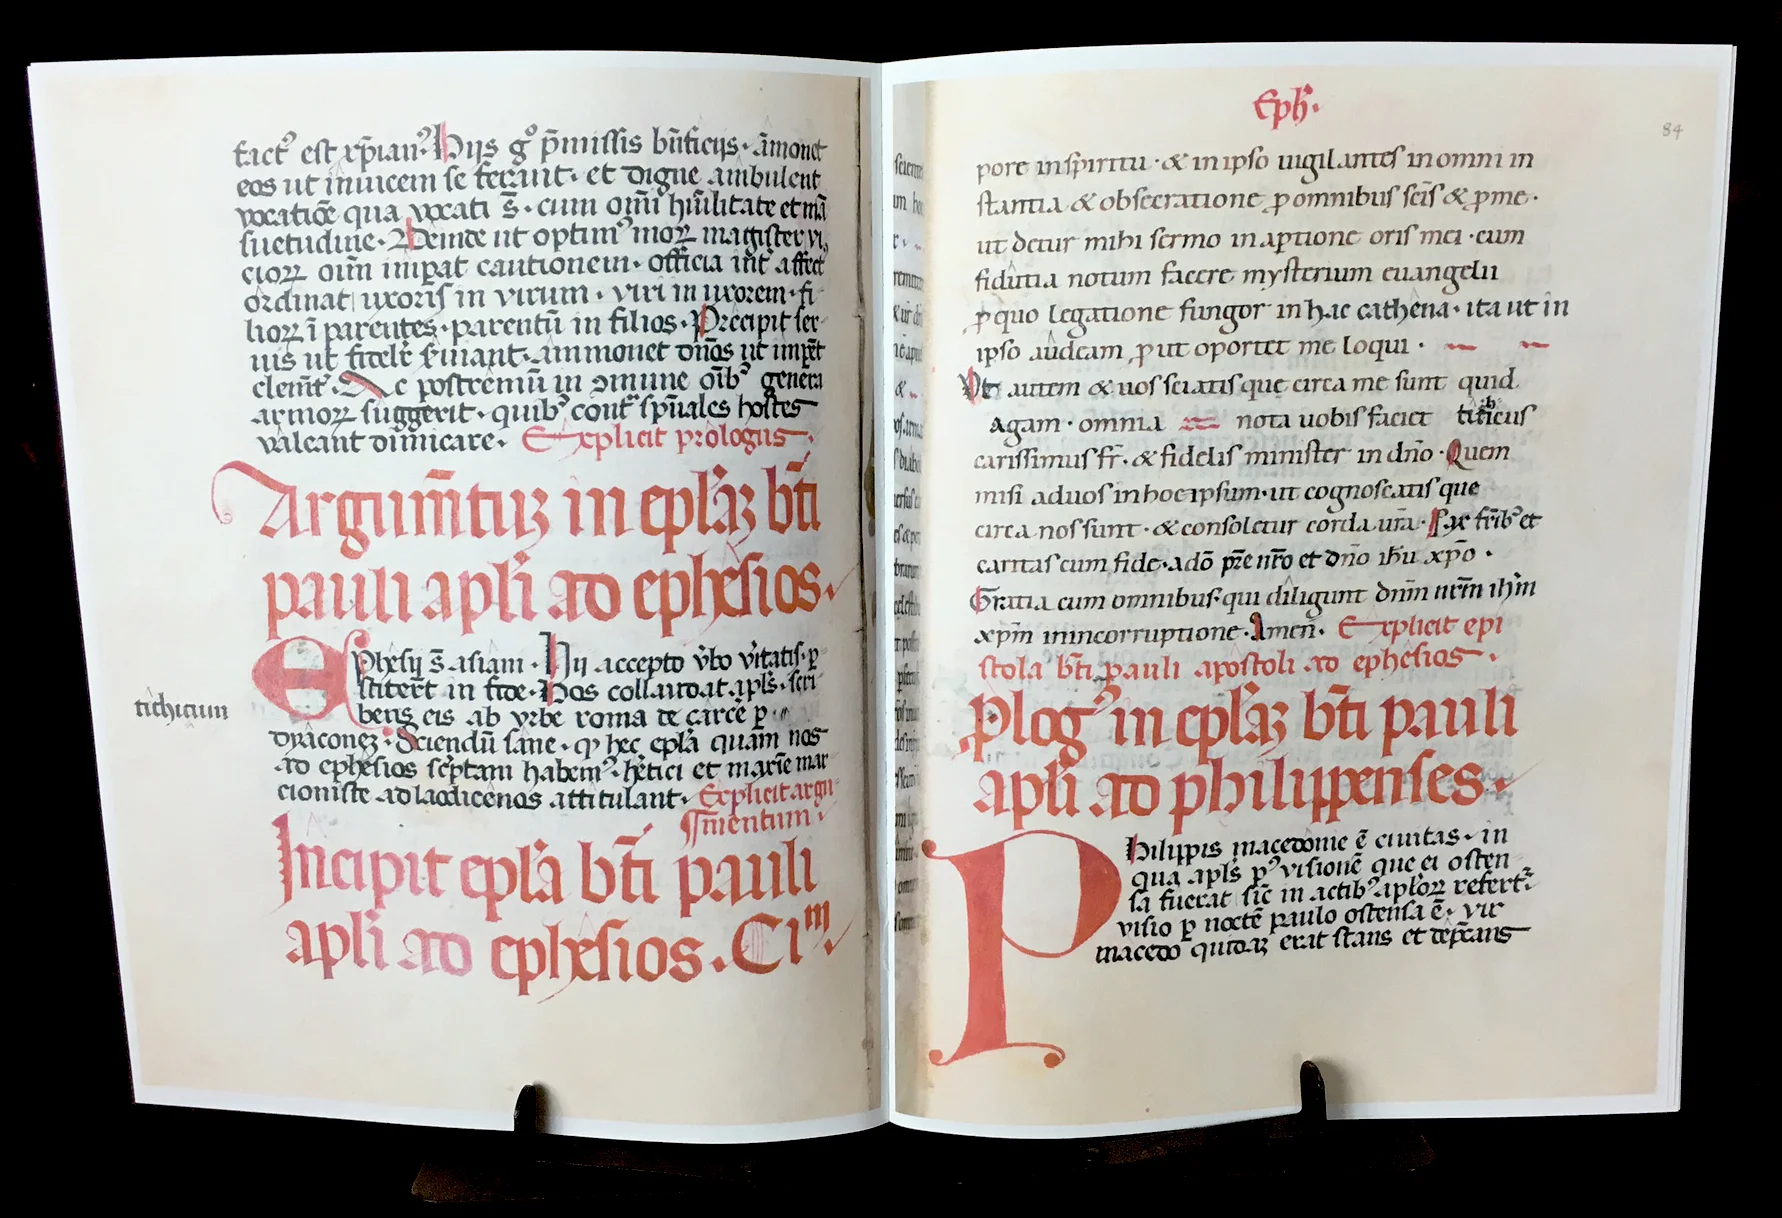 fact᷒ est xp̄ian᷒. Hiis gͦ p̄missis bn̄ficijs · am̄onet
eos ut inuicem se ferant · et digne ambulent
vocatiōe qua vocati s̄ · cum om̄i hūilitate et mā
suetudine · Deinde ut optim᷒ moꝝ magister vi
cioꝝ oīm imꝑat cautionem · officia int̄ affect᷒
ordinat uxoris in virum · viri in uxorem · fi
lioꝝ ī parentes · parentū in filios · Precipit ser
uis ut fideľr ẜuiant · ammonet dn̄os ut imꝑēt
clemēt᷒. Ac postremū in ꝯmune oīb᷒ genera
armoꝝ suggerit · quib᷒ cont᷑ sp̄uales hostes
valeant dimicare · Explicit prologus ·
Argum̄tuꝫ in epl̄aꝫ bt̄i
pauli apl̄i ad ephesios ·
EPhesij s̄ asiani · Hij accepto v̄bo v̄itatis · ꝑ
stiter̄t in fide · Hos collaudat apl̄s · scri
bens eis ab vrbe roma de carcē ꝑ
tichicum
dyaconeꝫ · Sciendū sane · ꝙ hec epl̄a quam nos
ad ephesios sc̄ptam habem᷒ · hētici et maxīe mar
cioniste ad laodicenos attitulant · Explicit argu
¶mentum ·
Incipit epl̄a bt̄i pauli
apl̄i ad ephesios · C im̄.
Eph̄ ·
84
pore in sp̄iritu · & in ipso uigilantes in omni in
stantia & obsecratione ꝑ omnibus sc̄is & ꝑ me ·
ut detur mihi sermo in aptione oris mei · cum
fidutia notum facere mysterium euangelii
ꝑ quo legatione fungor in hac cathena · ita ut in
ipso audeam ꝓ ut oportet me loqui ·
Vt autem & uos sciatis que circa me sunt quid
Agam · omnia nota uobis faciet titicus
carissimus fr̄ · & fidelis minister in dn̄o · Quem
misi ad uos in hoc ipsum · ut cognoscatis que
circa nos sunt · & consoletur corda ur̄a · Pax fr̄ib᷒ et
caritas cum fide · a dō pr̄e nr̄o et dn̄o ih̄u xp̄o ·
Gratia cum omnibus · qui diligunt dn̄m nr̄m ih̄m
xp̄m in incorruptione · Amen̄ · Explicit epi
stola bt̄i pauli apostoli ad ephesios ·
Plog᷒ in epl̄aꝫ bt̄i pauli
apl̄i ad philippenses ·
PHilippis macedonie ē ciuitas · in
qua apl̄s p᷒ visionē que ei osten
sa fuerat sic̄ in actib᷒ apl̄oꝝ refert᷑:
visio ꝑ noctē paulo ostensa ē · vir
macedo quidaꝫ erat stans et dep̄cans